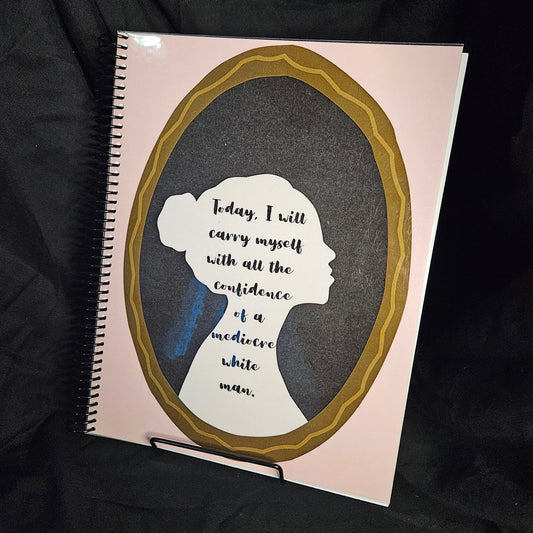 Today, I will
carry myself
with all the
confidence
of a
mediocre
white
man.